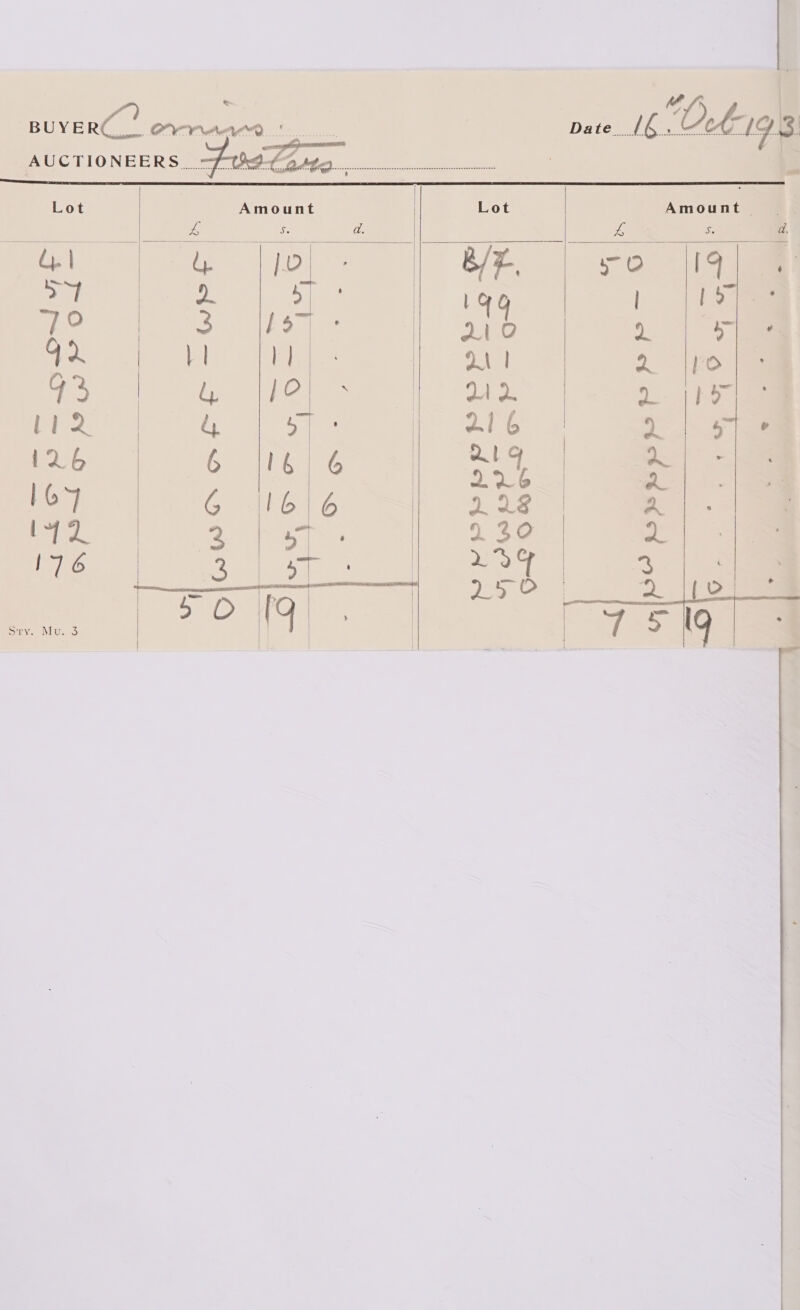 BUYER Date 16th Oct 193
AUCTIONEERS
Lot Amount Lot Amount
£ s. d. £ s. d.
41 4 10 · B/F. 50 19 ·
57 2 5 · 199 1 15 ·
70 3 15 · 210 2 5 ·
92 11 11 · 211 2 10 ·
93 4 10 · 212 2 15 ·
112 4 5 · 216 2 5 ·
126 6 16 6 219 2 · ·
167 6 16 6 226 2 · ·
172 3 5 · 228 2 · ·
176 3 5 · 230 2 · ·
239 3 · ·
250 2 10 ·
50 19 · 75 19 ·
Srv. Mu. 3